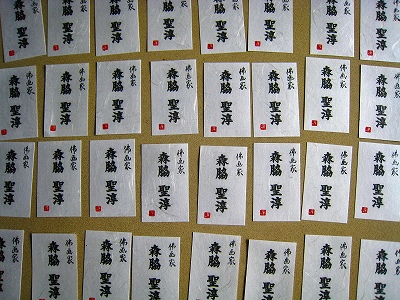 家
森脇 聖淳
家
森脇 聖淳
家
森脇 聖淳
家
森脇 聖淳
家
森脇 聖淳
家
森脇 聖淳
家
森脇 聖淳
森脇 聖淳
佛画家
森脇 聖淳
佛画家
森脇 聖淳
佛画家
森脇 聖淳
佛画家
森脇 聖淳
佛画家
森脇 聖淳
佛画家
森脇 聖淳
佛画家
森脇 聖淳
佛画家
森脇 聖淳
佛画家
森脇 聖淳
佛画家
森脇 聖淳
佛画家
森脇 聖淳
佛画家
森脇 聖淳
佛画家
森脇 聖淳
佛画家
森脇 聖淳
佛画家
森脇 聖淳
佛画家
森脇 聖淳
佛画家
森脇 聖
佛画家
森脇 聖
佛画家
森脇 聖
佛画家
森脇 聖
佛画家
森脇 聖
佛画家
森脇 聖
佛画家
森脇 聖
佛画家
森脇 聖